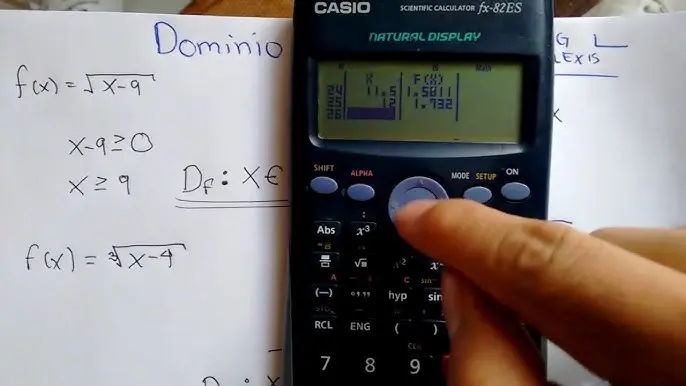 Dominio
f(x) = √x-9
x-9 ≥ 0
x ≥ 9
Df: X∈
f(x) = ∛x-4
CASIO
SCIENTIFIC CALCULATOR fx-82ES
NATURAL DISPLAY
Math
X F(X)
24 11.5 1.5811
25 12 1.732
26
SHIFT ALPHA MODE SETUP ON
Abs x³
√ x²
(−) hyp sin
STO
RCL ENG ( )
CLR
7 8 9